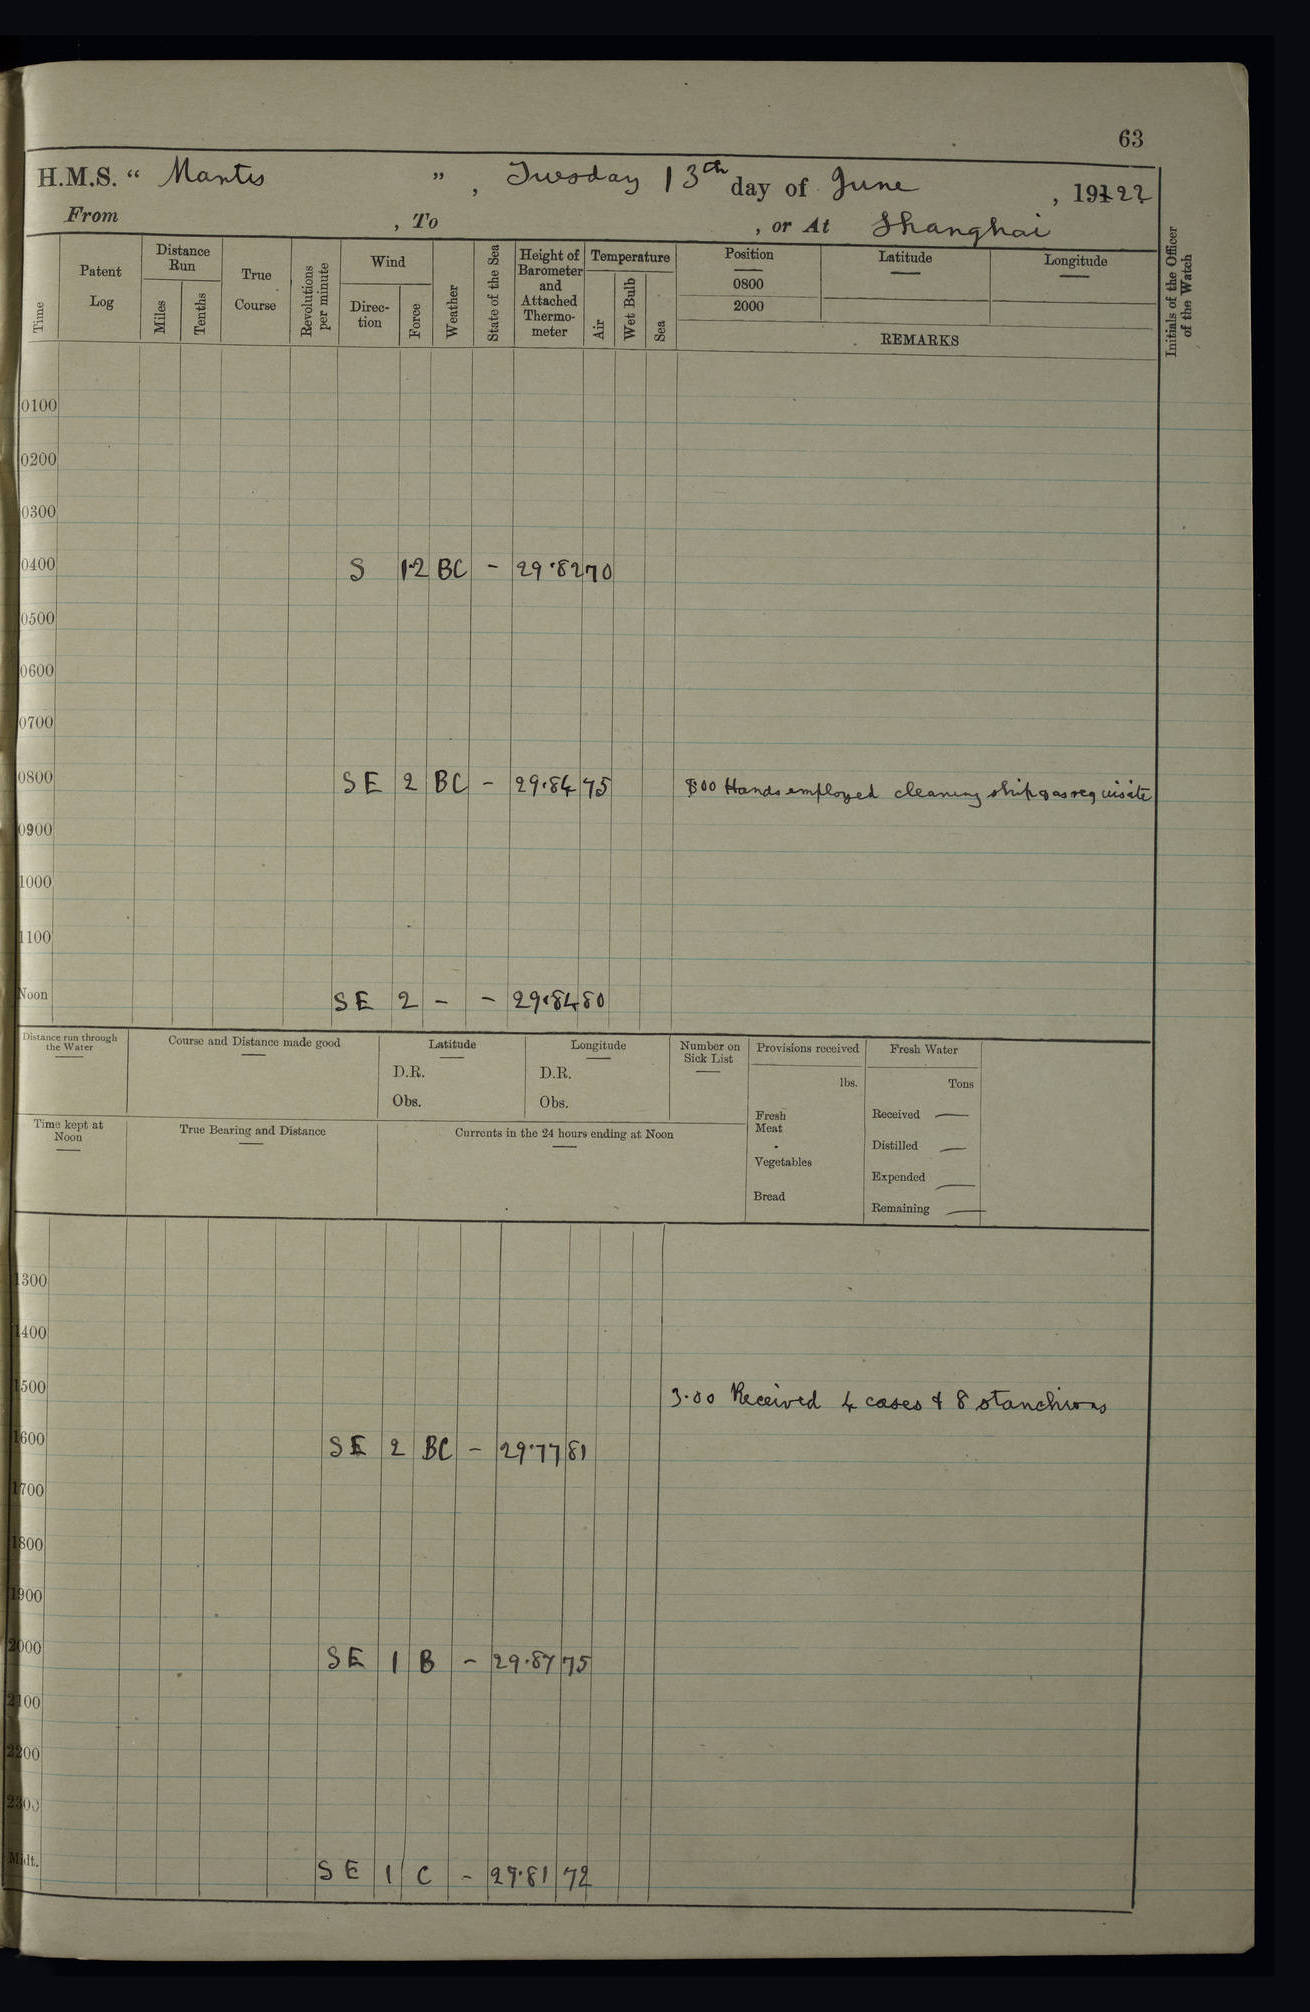 63
H.M.S. “ Mantis ” , Tuesday 13th day of June , 19122
From , To , or At Shanghai
Time
Patent Log
Distance Run
Miles
Tenths
True Course
Revolutions per minute
Wind
Direc- tion
Force
Weather
State of the Sea
Height of Barometer and Attached Thermo- meter
Temperature
Air
Wet Bulb
Sea
Position
0800
2000
Latitude
Longitude
REMARKS
Initials of the Officer of the Watch
0100
0200
0300
0400 S 1·2 BC - 29·82 70
0500
0600
0700
0800 SE 2 BC - 29·84 75 8·00 Hands employed cleaning ship & as requisite
0900
1000
1100
Noon SE 2 - - 29·84 80
Distance run through the Water
Course and Distance made good
Latitude
D.R.
Obs.
Longitude
D.R.
Obs.
Number on Sick List
Provisions received
lbs.
Fresh Meat
Vegetables
Bread
Fresh Water
Tons
Received —
Distilled —
Expended —
Remaining —
Time kept at Noon
True Bearing and Distance
Currents in the 24 hours ending at Noon
1300
1400
1500 3·00 Received 4 cases & 8 stanchions
1600 SE 2 BC - 29·77 81
1700
1800
1900
2000 SE 1 B - 29·87 75
2100
2200
2300
Midt. SE 1 C - 29·81 72